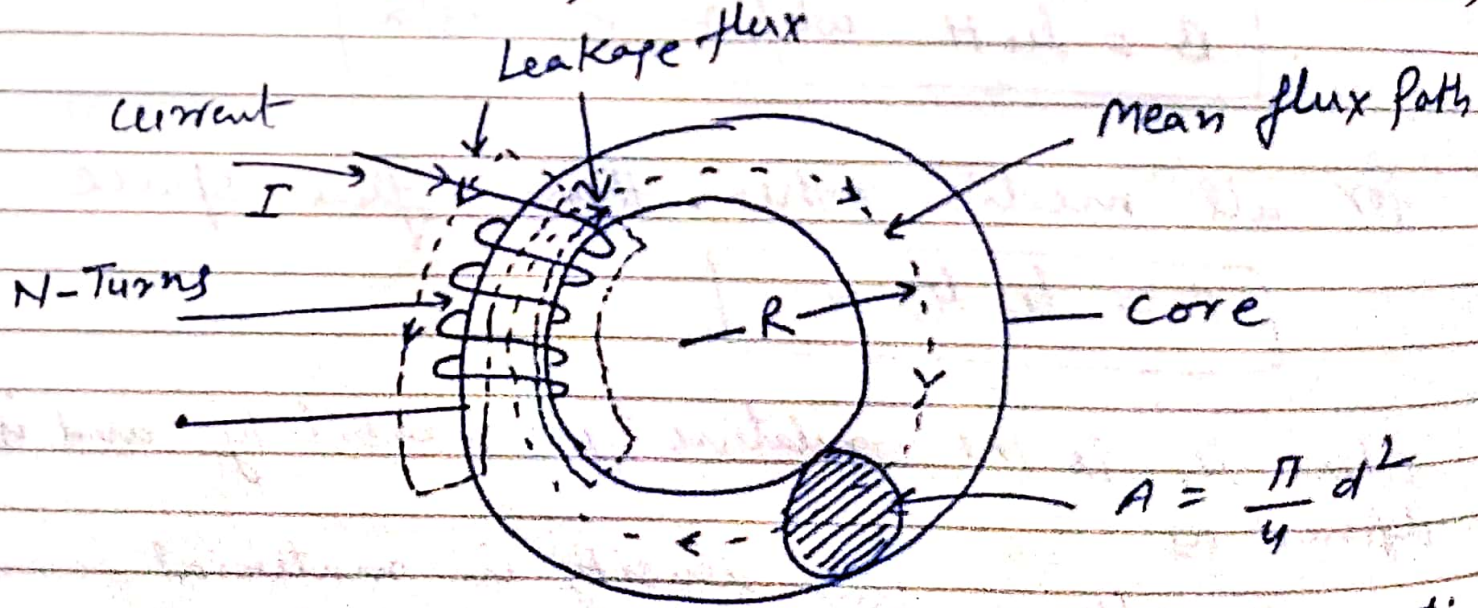 Leakage flux
Current
Mean flux Path
I
N-Turns
R
Core
A = π/4 d²